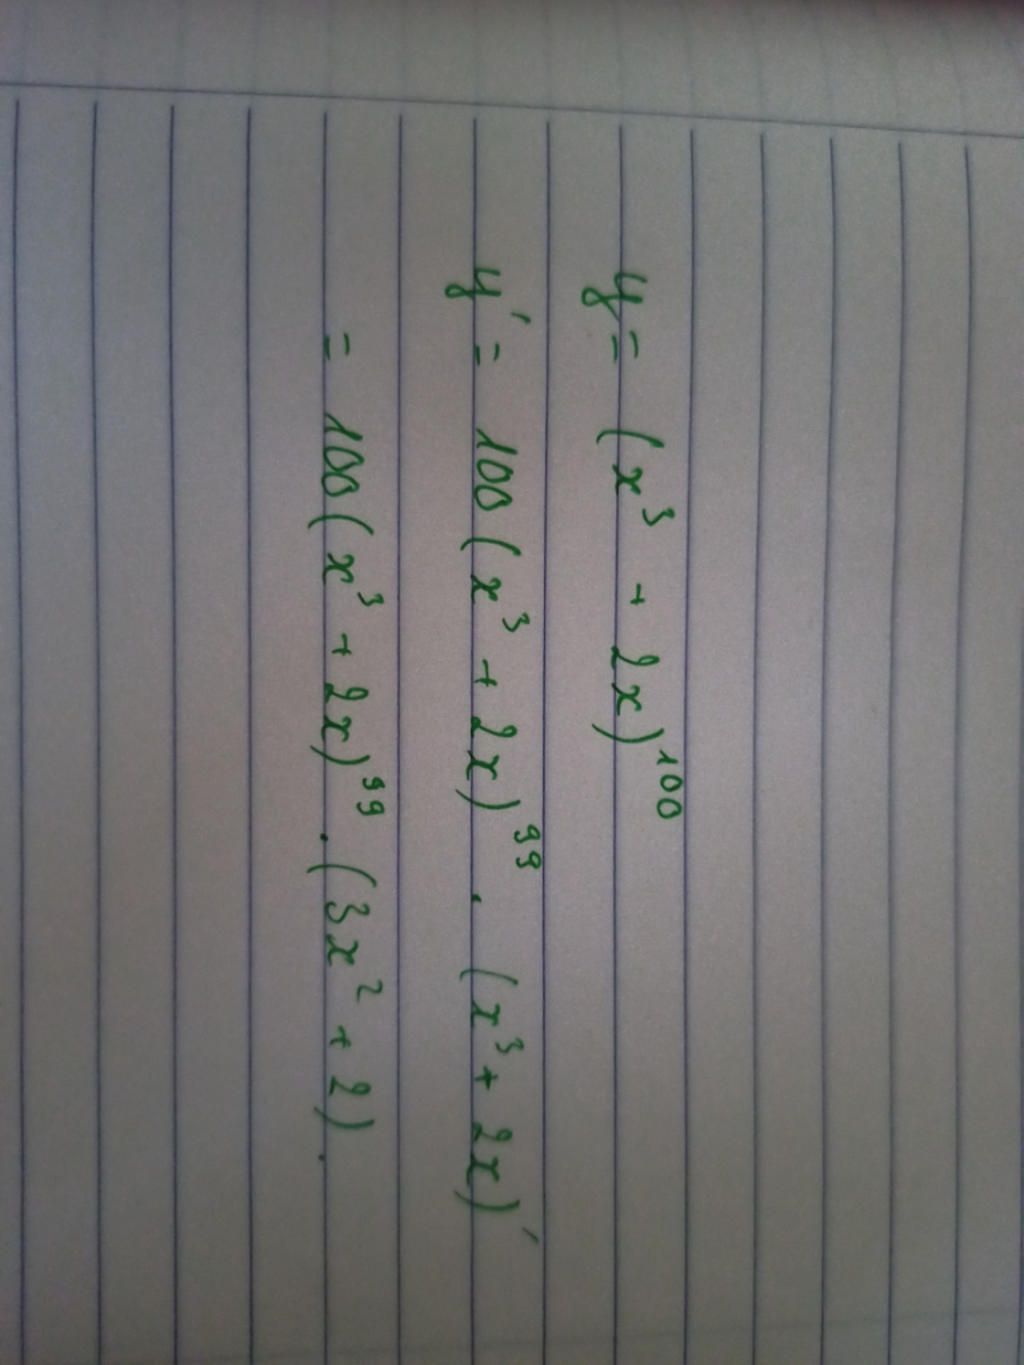 y = (x³ + 2x)¹⁰⁰
y' = 100(x³ + 2x)⁹⁹ . (x³ + 2x)'
= 100(x³ + 2x)⁹⁹ . (3x² + 2).